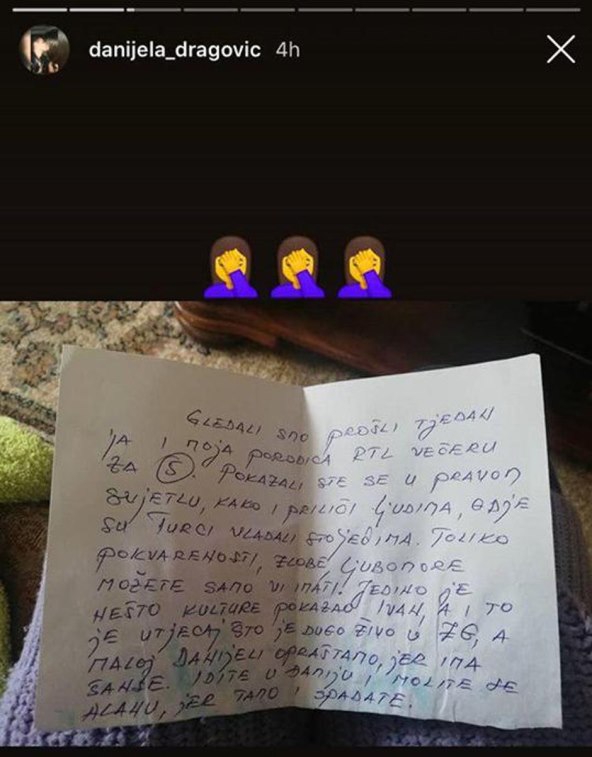 danijela_dragovic 4h
GLEDALI SMO PROŠLI TJEDAN
JA I MOJA PORODICA RTL VEČERU
ZA 5. POKAZALI STE SE U PRAVOM
SVJETLU, KAKO I PRILIČI LJUDIMA, GDJE
SU TURCI VLADALI STOLJEĆIMA. TOLIKO
POKVARENOSTI, ZLOBE LJUBOMORE
MOŽETE SAMO VI IMATI. JEDINO JE
NEŠTO KULTURE POKAZAO IVAN, A I TO
JE UTJECAJ ŠTO JE DUGO ŽIVO U ZG, A
MALOJ DANIJELI OPRAŠTAMO, JER IMA
ŠANSE. IDITE U DAMIJU I MOLITE SE
ALAHU, JER TAMO I SPADATE.